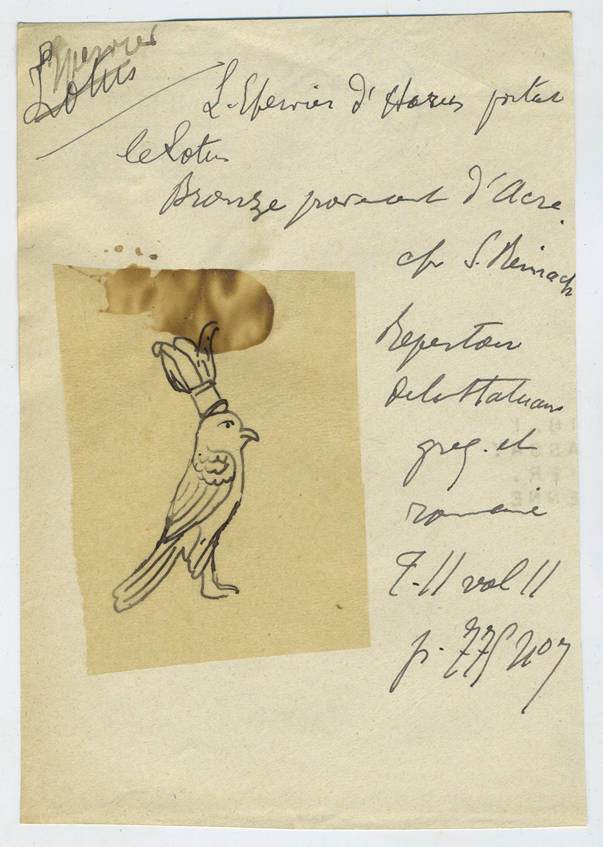 Epervier
Lotus
L'Epervier d'Horus portant
le Lotus
Bronze provenant d'Acre.
cfr S. Reinach
Repertoire
de la Statuaire
grecq. et
romaine
T. II vol II
p. 775 N° 7